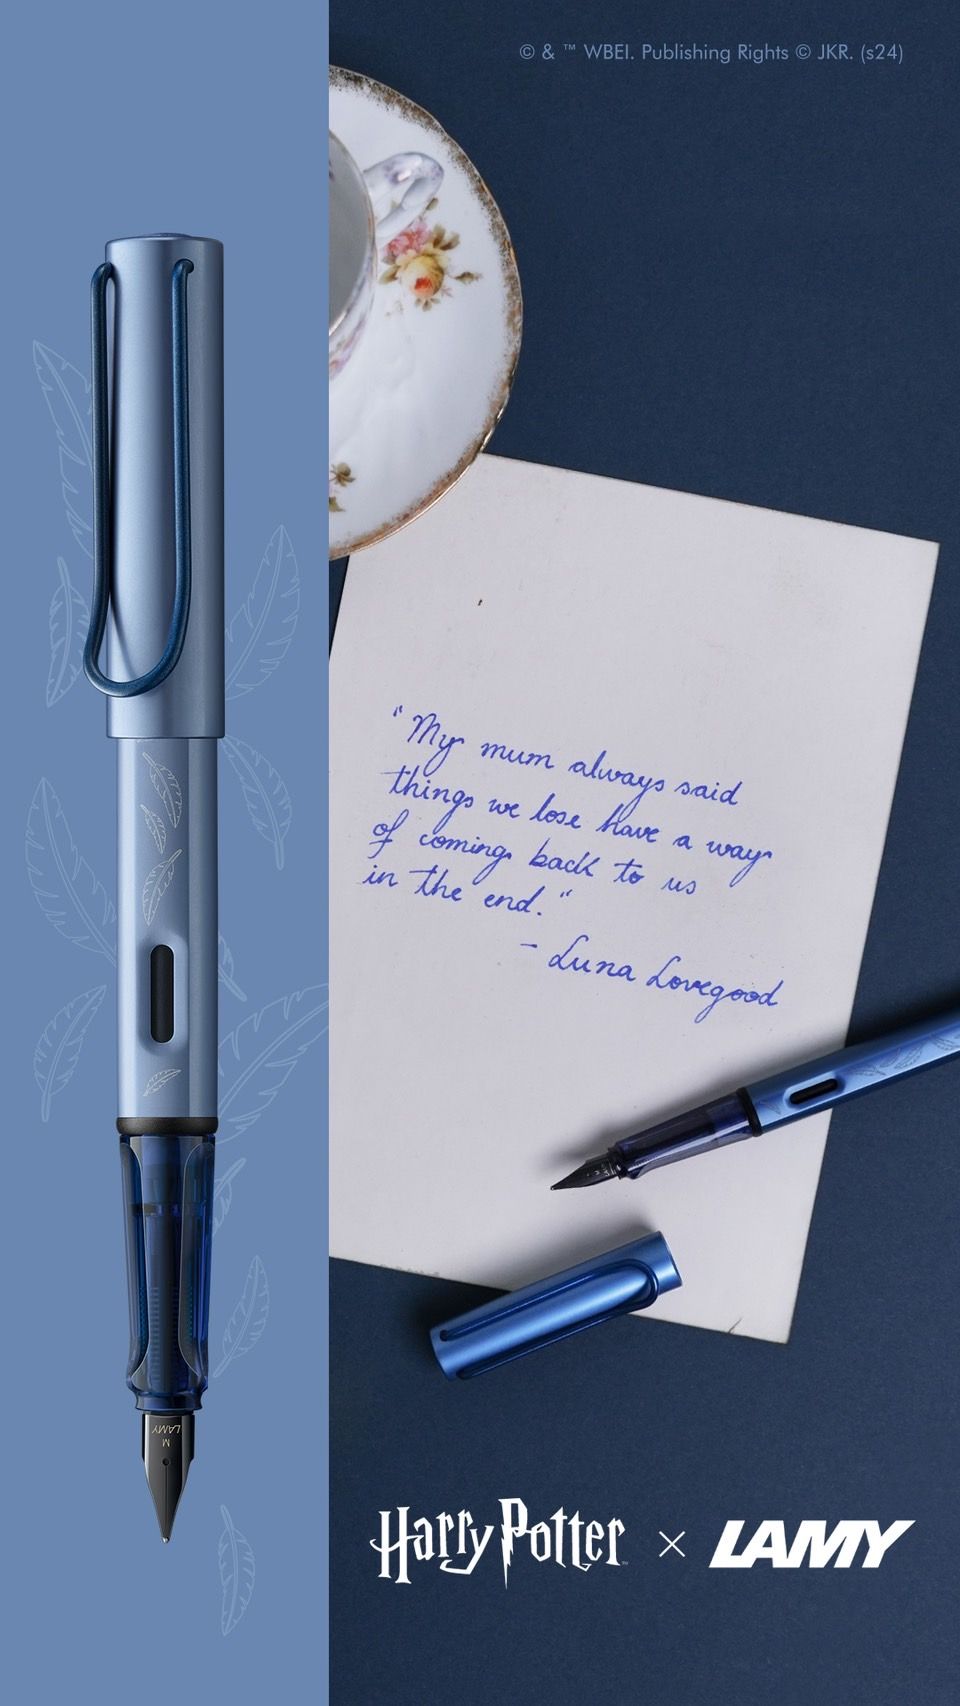 © & ™ WBEI. Publishing Rights © JKR. (s24)
"My mum always said
things we lose have a way
of coming back to us
in the end."
- Luna Lovegood
LAMY
M
Harry Potter™ × LAMY